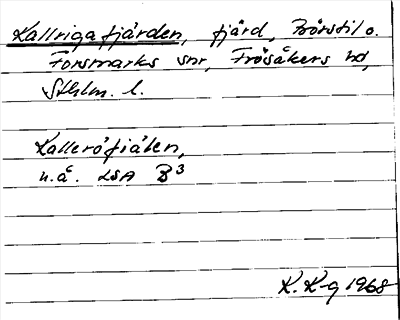 Kallrigafjärden, fjärd, Börstil o.
Forsmarks snr, Frösåkers hd,
Sthlm. l.
Kalleröfjälen,
u.å. LSA B³
K. K-g 1968